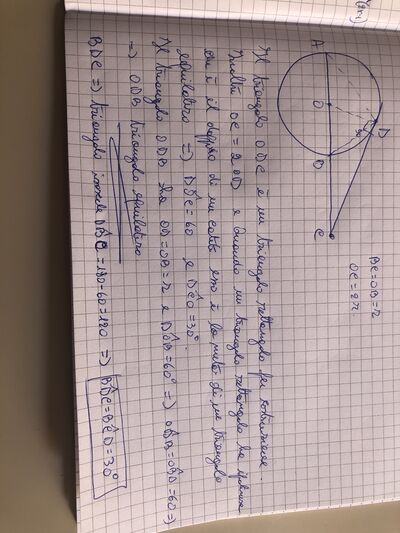 BC=OB=r
OC=2r.
A
O
B
C
D
Il triangolo ODC è un triangolo rettangolo per costruzione.
Inoltre OC=2OD e quando un triangolo rettangolo ha
che è il doppio di un cateto esso è la metà di un triangolo
equilatero => DÔC=60 e DĈO=30°
Il triangolo ODB ha OD=OB=r e DÔB=60° => ODB=OBD=60 =>
=> ODB triangolo equilatero
BDC => triangolo isoscele DBC=180-60=120 => BDC=BCD=30°